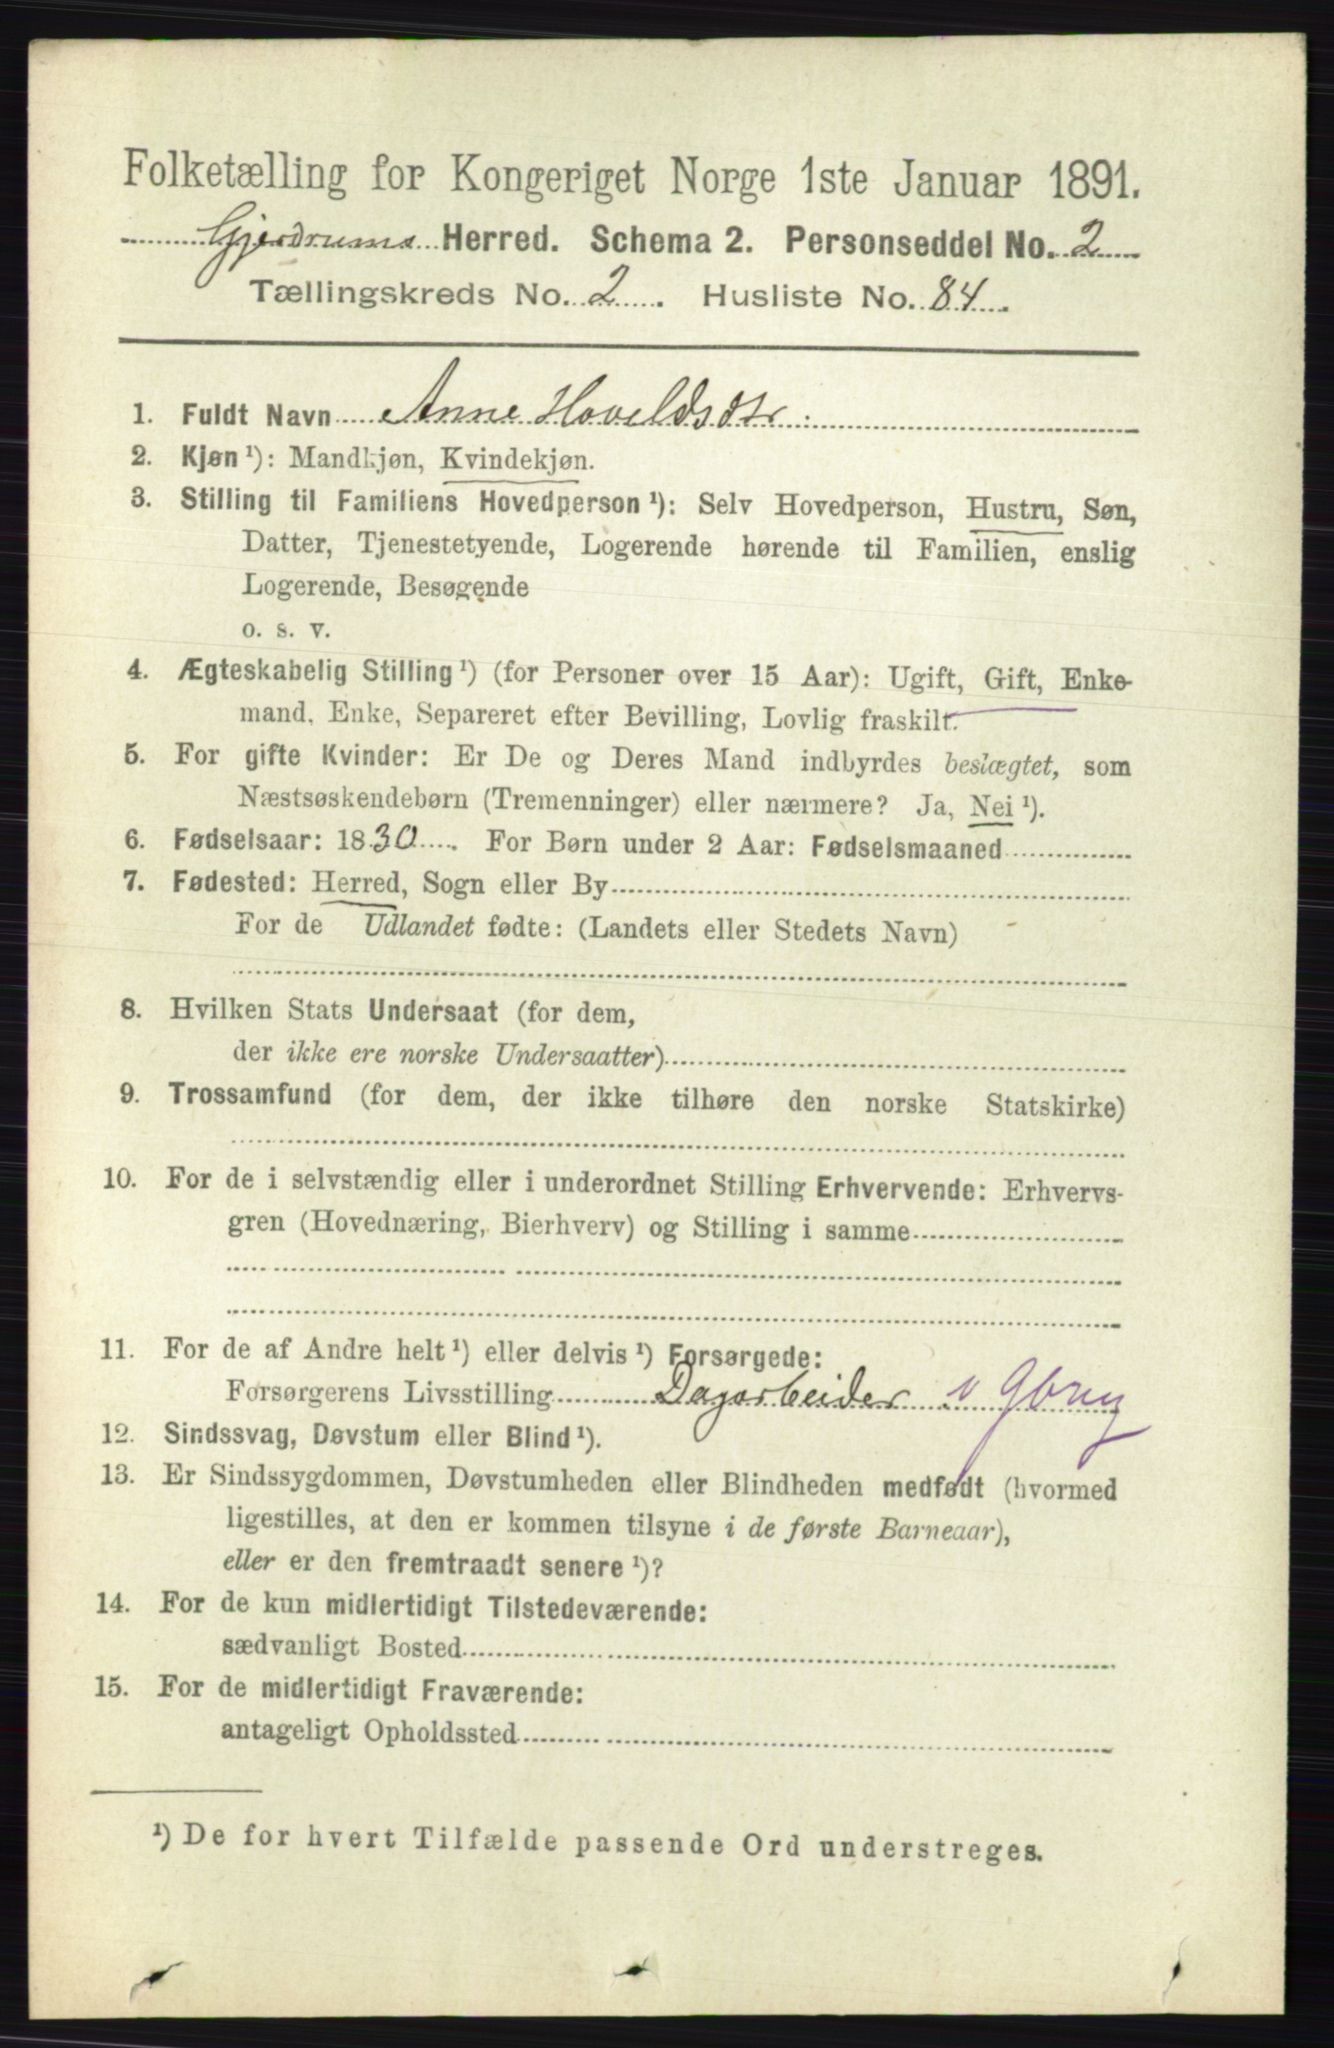 Folketælling for Kongeriget Norge 1ste Januar 1891.
Gjerdrums Herred. Schema 2. Personseddel No. 2
Tællingskreds No. 2. Husliste No. 84.
1. Fuldt Navn Anne Hovelsdtr.
2. Kjøn ¹): Mandkjøn, Kvindekjøn.
3. Stilling til Familiens Hovedperson ¹): Selv Hovedperson, Hustru, Søn,
Datter, Tjenestetyende, Logerende hørende til Familien, enslig
Logerende, Besøgende
o. s. v.
4. Ægteskabelig Stilling ¹) (for Personer over 15 Aar): Ugift, Gift, Enke-
mand, Enke, Separeret efter Bevilling, Lovlig fraskilt.
5. For gifte Kvinder: Er De og Deres Mand indbyrdes beslægtet, som
Næstsøskendebørn (Tremenninger) eller nærmere? Ja, Nei ¹).
6. Fødselsaar: 1830. For Børn under 2 Aar: Fødselsmaaned
7. Fødested: Herred, Sogn eller By
For de Udlandet fødte: (Landets eller Stedets Navn)
8. Hvilken Stats Undersaat (for dem,
der ikke ere norske Undersaatter)
9. Trossamfund (for dem, der ikke tilhøre den norske Statskirke)
10. For de i selvstændig eller i underordnet Stilling Erhvervende: Erhvervs-
gren (Hovednæring, Bierhverv) og Stilling i samme
11. For de af Andre helt ¹) eller delvis ¹) Forsørgede:
Forsørgerens Livsstilling Dagarbeider v Gbrug
12. Sindssvag, Døvstum eller Blind ¹).
13. Er Sindssygdommen, Døvstumheden eller Blindheden medfødt (hvormed
ligestilles, at den er kommen tilsyne i de første Barneaar),
eller er den fremtraadt senere ¹)?
14. For de kun midlertidigt Tilstedeværende:
sædvanligt Bosted
15. For de midlertidigt Fraværende:
antageligt Opholdssted
¹) De for hvert Tilfælde passende Ord understreges.